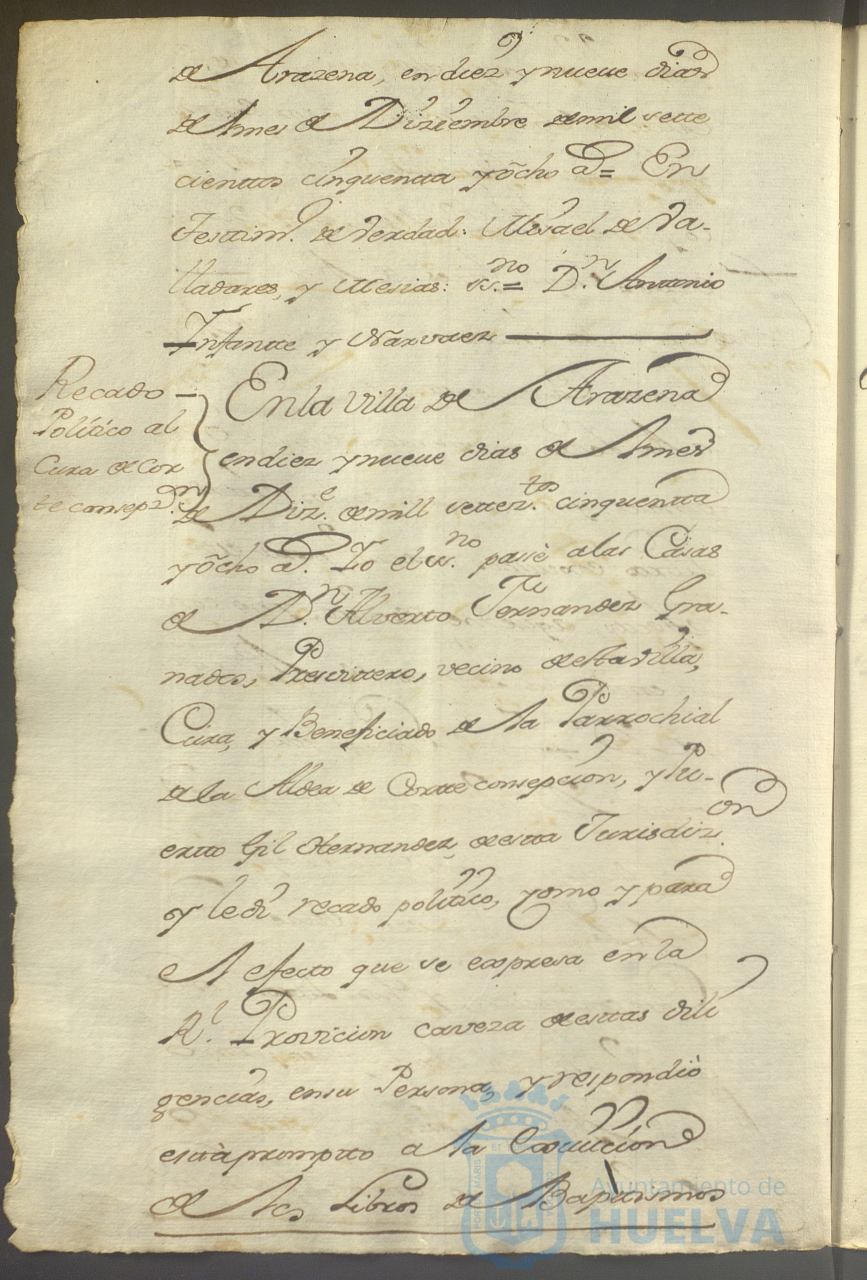 de Arazena, en diez y nueve dias
del mes de Diziembre de mil sette
cienttos cinquentta y ocho as.= En
Testtim.º de Verdad: Misael de Va-
lladares, y Mesias: ss.no= D.n Antonio
Infantte y Narvaez
Recado
Político al
Cura de Cor
te consepz.n
En la villa de Arazena
en diez y nueve dias del mes
de Diz.e de mill settez.tos cinquentta
y ocho as. Yo el ss.no passè a las Casas
de D.n Alvertto Fernandez Gra-
nados, Presvittero, vecino de esta villa,
Cura, y Beneficiado de la Parrochial
de la Aldea de Corte consepcion, y Pu-
ertto Gil Hernandez, de estta Jurisdiz.on
y le di recado político, como y para
el efecto que se expresa en la
R.l Provicion caveza de esttas dili
gencias, en su Persona, y respondiò
esttà promptto a la Exivicion
de los Libros de Bapttismos
Ayuntamiento de
HUELVA